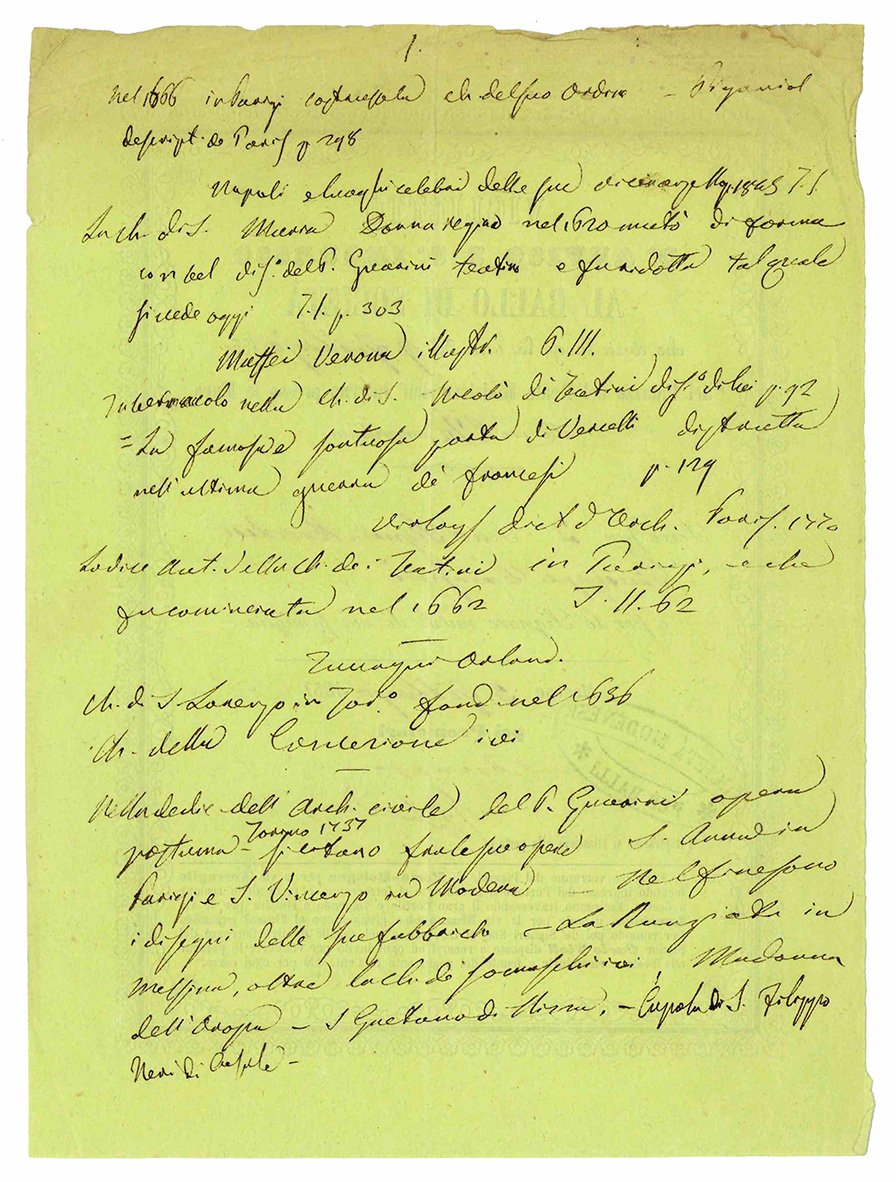 1.
Nel 1666 in Parigi ch. del suo Ordine – Piganiol
descript. de Paris p. 298
Napoli e luoghi celebri delle sue vicinanze Nap. 1845 T. I
La ch. di S. Maria Donna regina nel 1620 mutò di forma
con bel dis.o del P. Guarini teatino e fu ridotta tal quale
si vede oggi T. I. p. 303
Maffei Verona illustr. P. III.
Tabernacolo nella Ch. di S. Nicolò de Teatini dis.o di lui p. 92
= La famosa e sontuosa porta di Vercelli distrutta
nell'ultima guerra de' francesi p. 129
dict. d'Arch. Paris. 1770
Lo dice Aut. della Ch. dei Teatini in Parigi, e che
fu cominciata nel 1662 T. II. 62
Orland.
Ch. di S. Lorenzo in Tor.o fond. nel 1636
Ch. della Concezione ivi
Nella dedic. dell'Arch. civile del P. Guarini opera
postuma – Torino 1737 si citano fra le sue opere S. Anna in
Parigi e S. Vincenzo in Modena – Nel fine sono
i disegni delle sue fabbriche – La Nunziata in
Messina, oltre la ch. de' somaschi ivi, Madonna
dell'Oropa – S. Gaetano di Nizza, – Cupola di S. Filippo
Neri di Casale –
AL BALLO DI
MODENESE